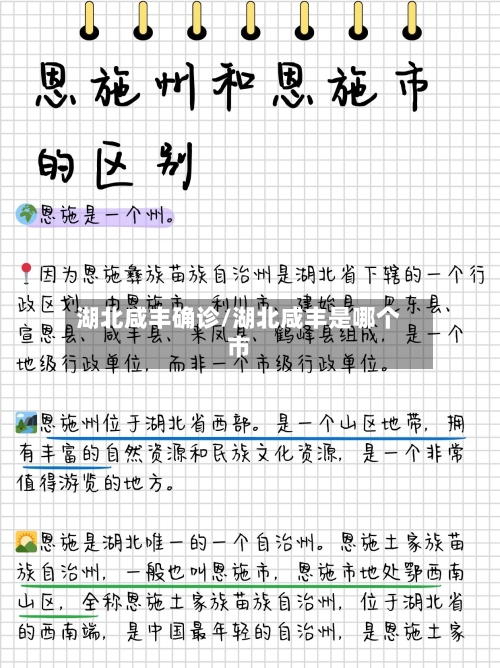 恩施州和恩施市
的区别
恩施是一个州。
因为恩施彝族苗族自治州是湖北省下辖的一个行
政区划，由恩施市、利川市、建始县、巴东县、
湖北咸丰确诊/湖北咸丰是哪个
市
宣恩县、咸丰县、来凤县、鹤峰县组成，是一个
地级行政单位，而非一个市级行政单位。
恩施州位于湖北省西部。是一个山区地带，拥
有丰富的自然资源和民族文化资源，是一个非常
值得游览的地方。
恩施是湖北唯一的一个自治州。恩施土家族苗
族自治州，一般也叫恩施市，恩施市地处鄂西南
山区，全称恩施土家族苗族自治州，位于湖北省
的西南端，是中国最年轻的自治州，是恩施土家